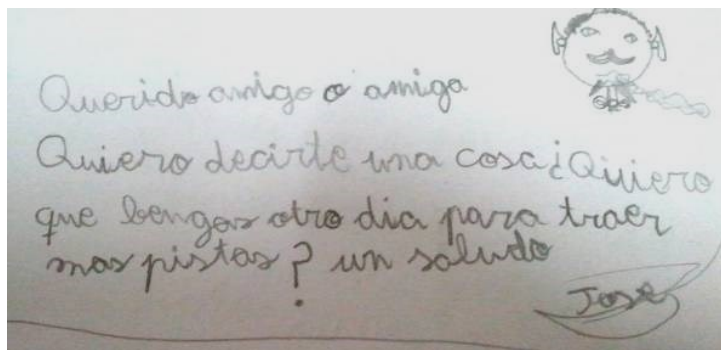 Querido amigo o amiga
Quiero decirte una cosa ¿Quiero
que bengas otro dia para traer
mas pistas? un saludo
Jose